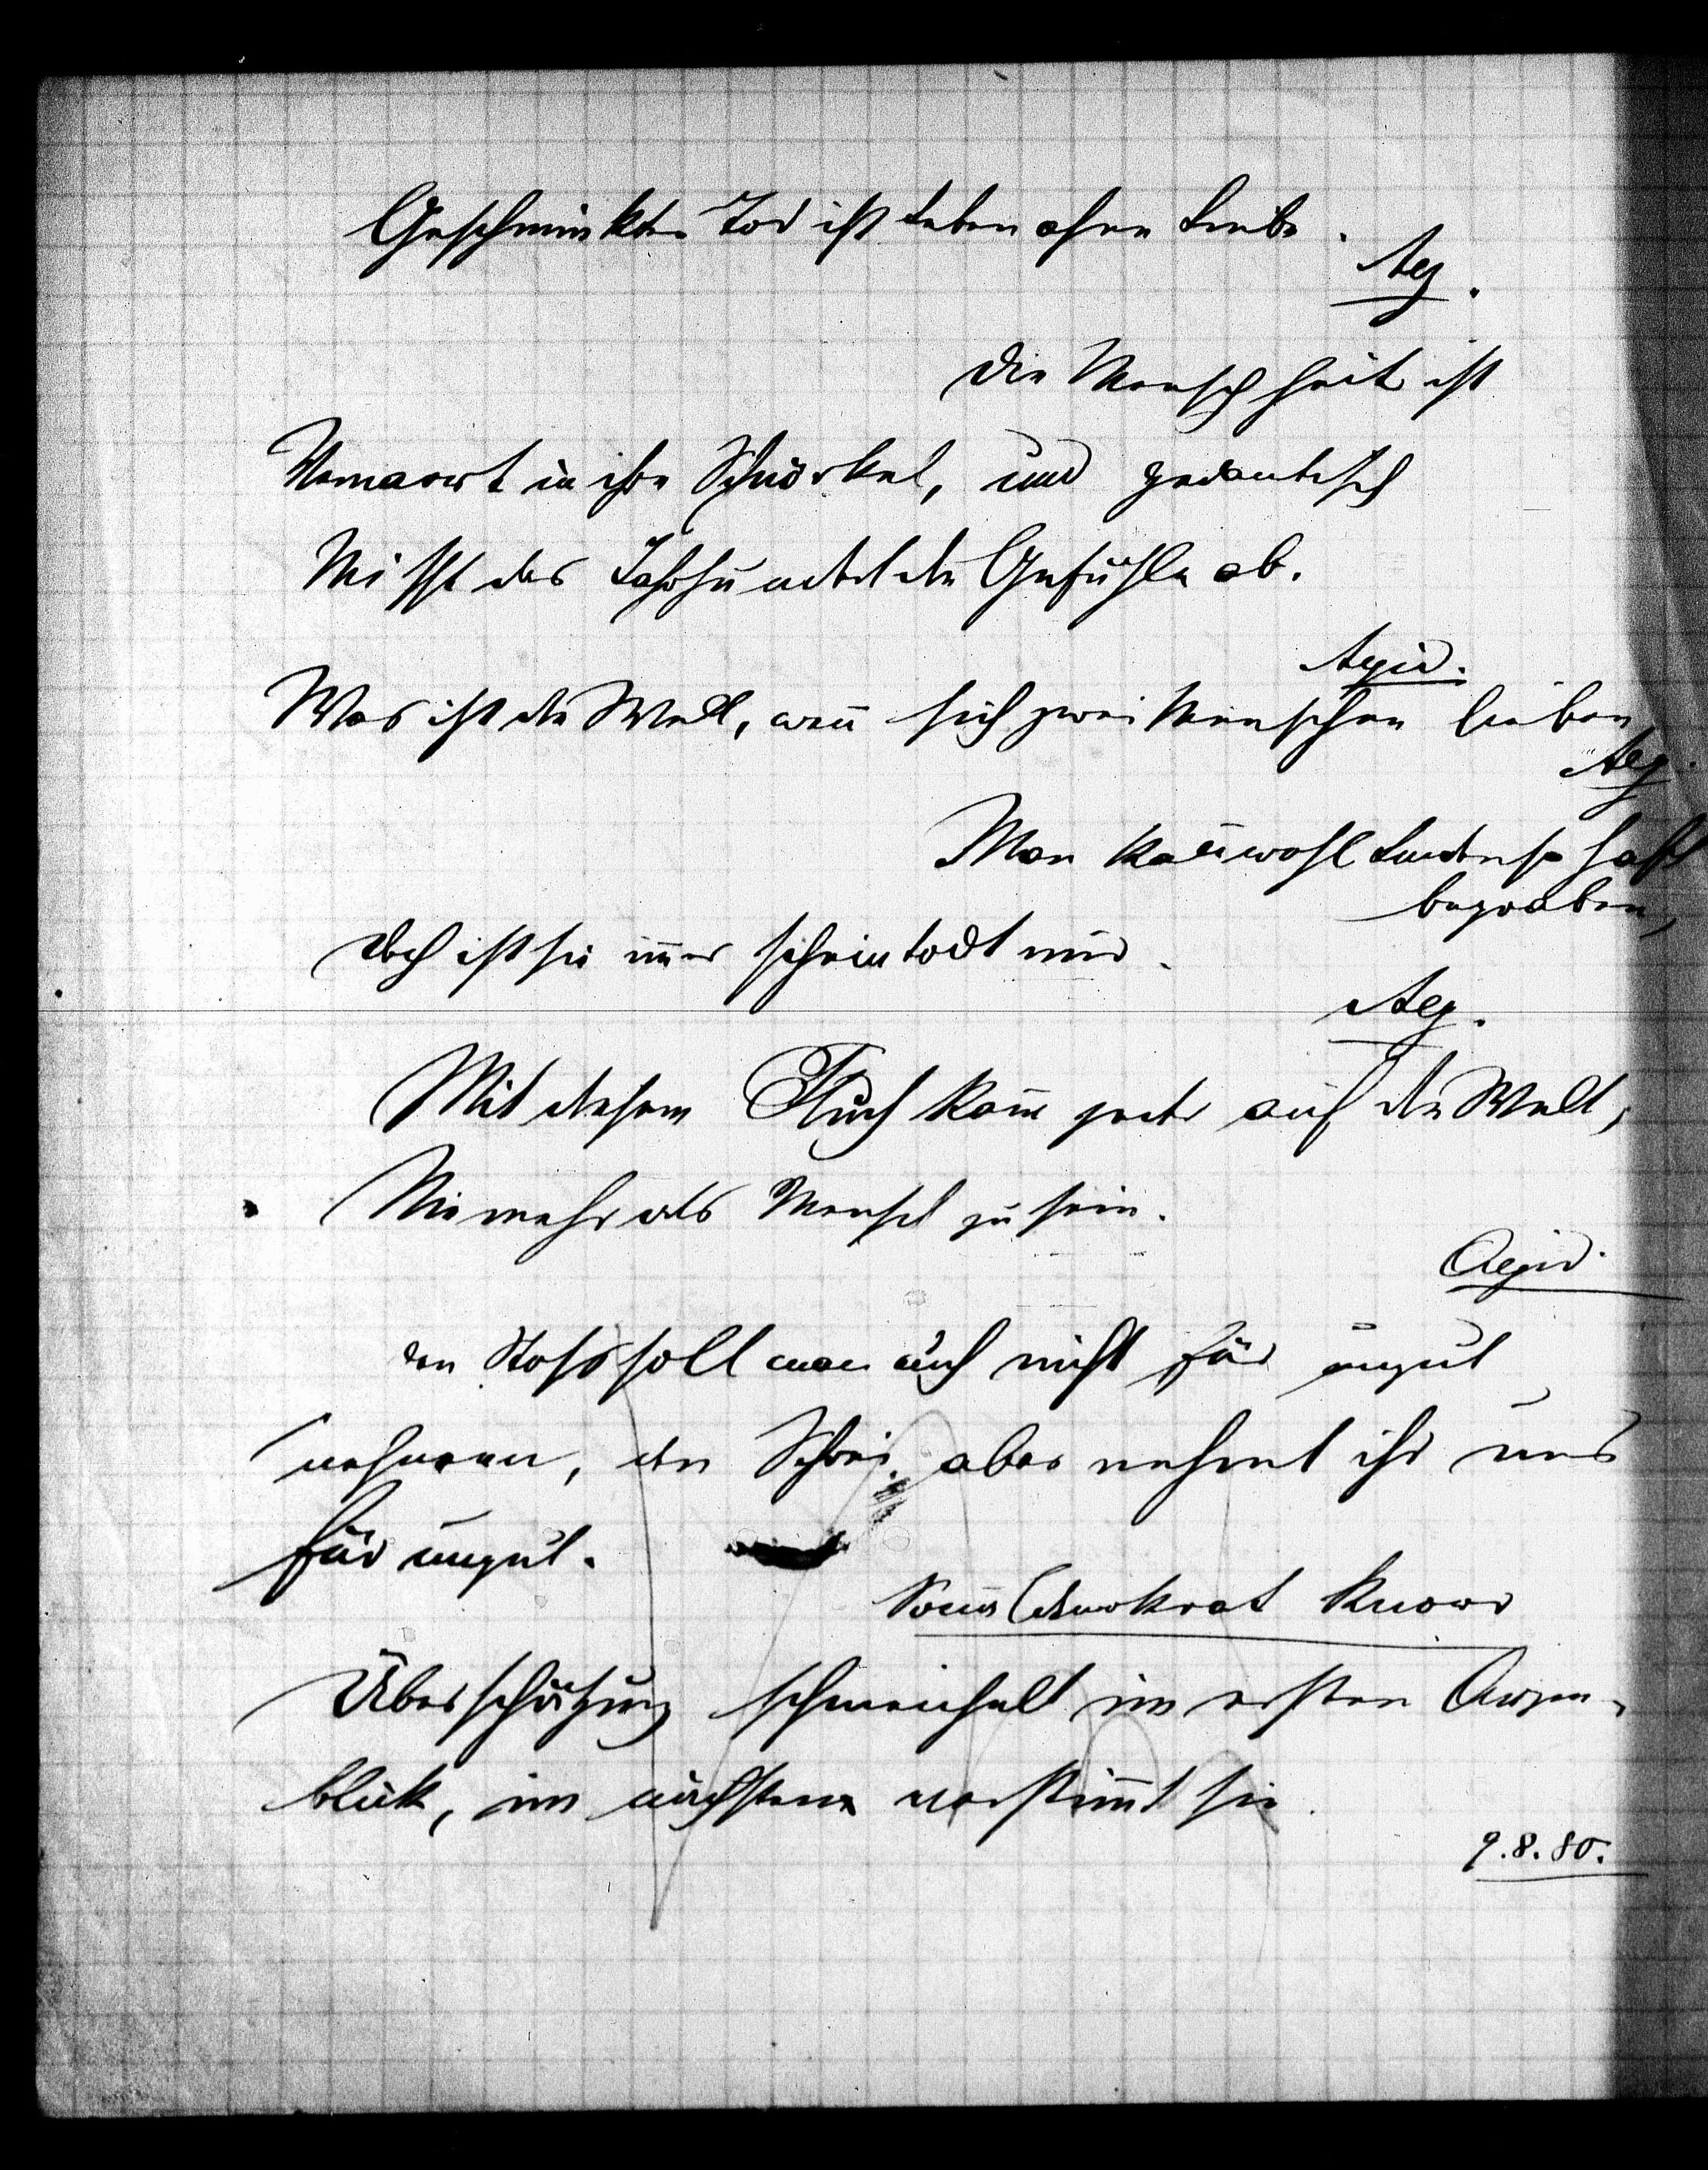 Geschminkter Tod ist Leben ohne Liebe.
Aeg.
Die Menschheit ist
Vernarrt in ihre Schnörkel, und pedantisch
Misst das Jahrhundert die Gefühle ab.
Aegid.
Was ist die Welt, wenn̄ sich zwei Menschen lieben
Aeg.
Man kan̄ wohl Leidenschaft
begraben,
doch ist sie im̄er scheintodt nur.
Aeg.
Mit diesem Fluch kom̄t jeder auf die Welt,
Nie mehr als Mensch zu sein.
Aegid.
den Stoss soll man auch nicht für ungut
nehmen, den Schrei aber nehmt ihr uns
für ungut.
Socialdemokrat Knorr
Überschätzung schmeichelt im ersten Augen-
blick, im nächsten verstim̄t sie.
9.8.80.